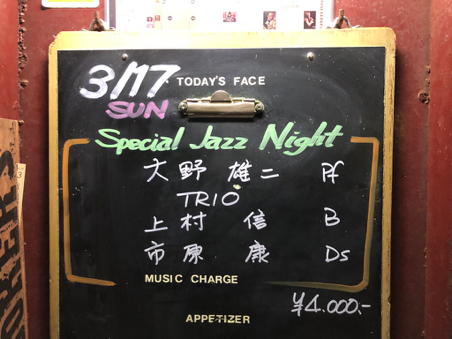 3/17 TODAY'S FACE
SUN
Special Jazz Night
大野 雄二 Pf
TRIO
上村 信 B
市原 康 Ds
MUSIC CHARGE
¥4.000.-
APPETIZER